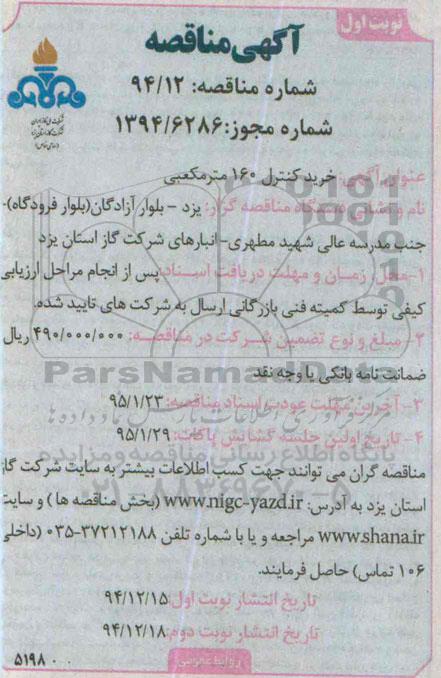 نوبت اول
آگهی مناقصه
شماره مناقصه: ۹۴/۱۲
شماره مجوز: ۱۳۹۴/۶۲۸۶
عنوان آگهی: خرید کنترل ۱۶۰ مترمکعبی
نام و نشانی دستگاه مناقصه گزار: یزد - بلوار آزادگان(بلوار فرودگاه)-
جنب مدرسه عالی شهید مطهری- انبارهای شرکت گاز استان یزد
۱-محل، زمان و مهلت دریافت اسناد: پس از انجام مراحل ارزیابی
کیفی توسط کمیته فنی بازرگانی ارسال به شرکت های تایید شده.
۲- مبلغ و نوع تضمین شرکت در مناقصه: ۴۹۰/۰۰۰/۰۰۰ ریال
ضمانت نامه بانکی یا وجه نقد
۳- آخرین مهلت عودت اسناد مناقصه: ۹۵/۱/۲۳
۴- تاریخ اولین جلسه گشایش پاکات: ۹۵/۱/۲۹
مناقصه گران می توانند جهت کسب اطلاعات بیشتر به سایت شرکت گاز
استان یزد به آدرس: www.nigc-yazd.ir (بخش مناقصه ها) و سایت
www.shana.ir مراجعه و یا با شماره تلفن ۳۷۲۱۲۱۸۸-۰۳۵ (داخلی
۱۰۶ تماس) حاصل فرمایند.
تاریخ انتشار نوبت اول: ۹۴/۱۲/۱۵
تاریخ انتشار نوبت دوم: ۹۴/۱۲/۱۸
روابط عمومی
۵۱۹۸۰۰۰
ParsNamadData
پایگاه اطلاع رسانی مناقصه و مزایده
۰۲۱-۸۸۳۴۹۶۷۰-۵